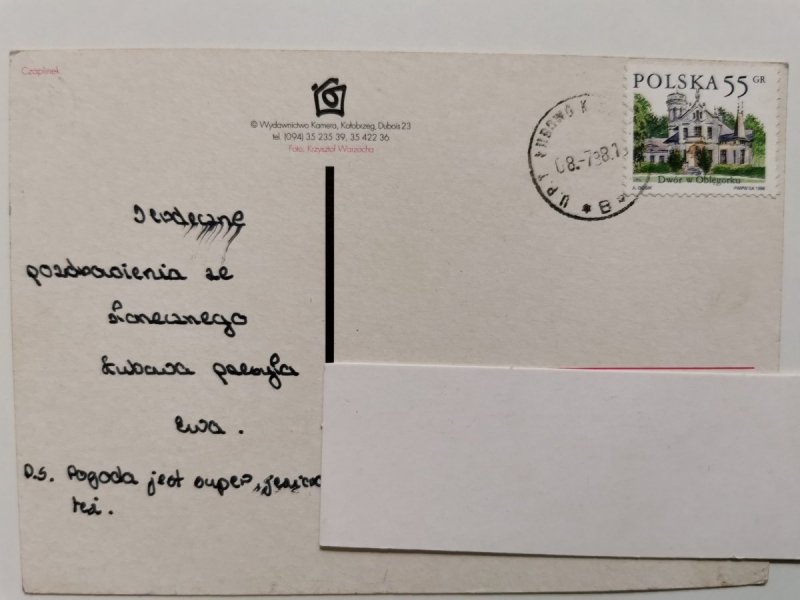 Czaplinek
© Wydawnictwo Kamera, Kołobrzeg, Dubois 23
tel. (094) 35 235 39, 35 422 36
Foto. Krzysztof Warzocha
POLSKA 55 GR
Dwór w Oblęgorku
PWPW SA 1998
U.P.T
08.-7.98.
* B *
Serdeczne
pozdrowienia ze
słonecznego
Łubowa przesyła
Ewa.
P.S. Pogoda jest super, jezioro
też.